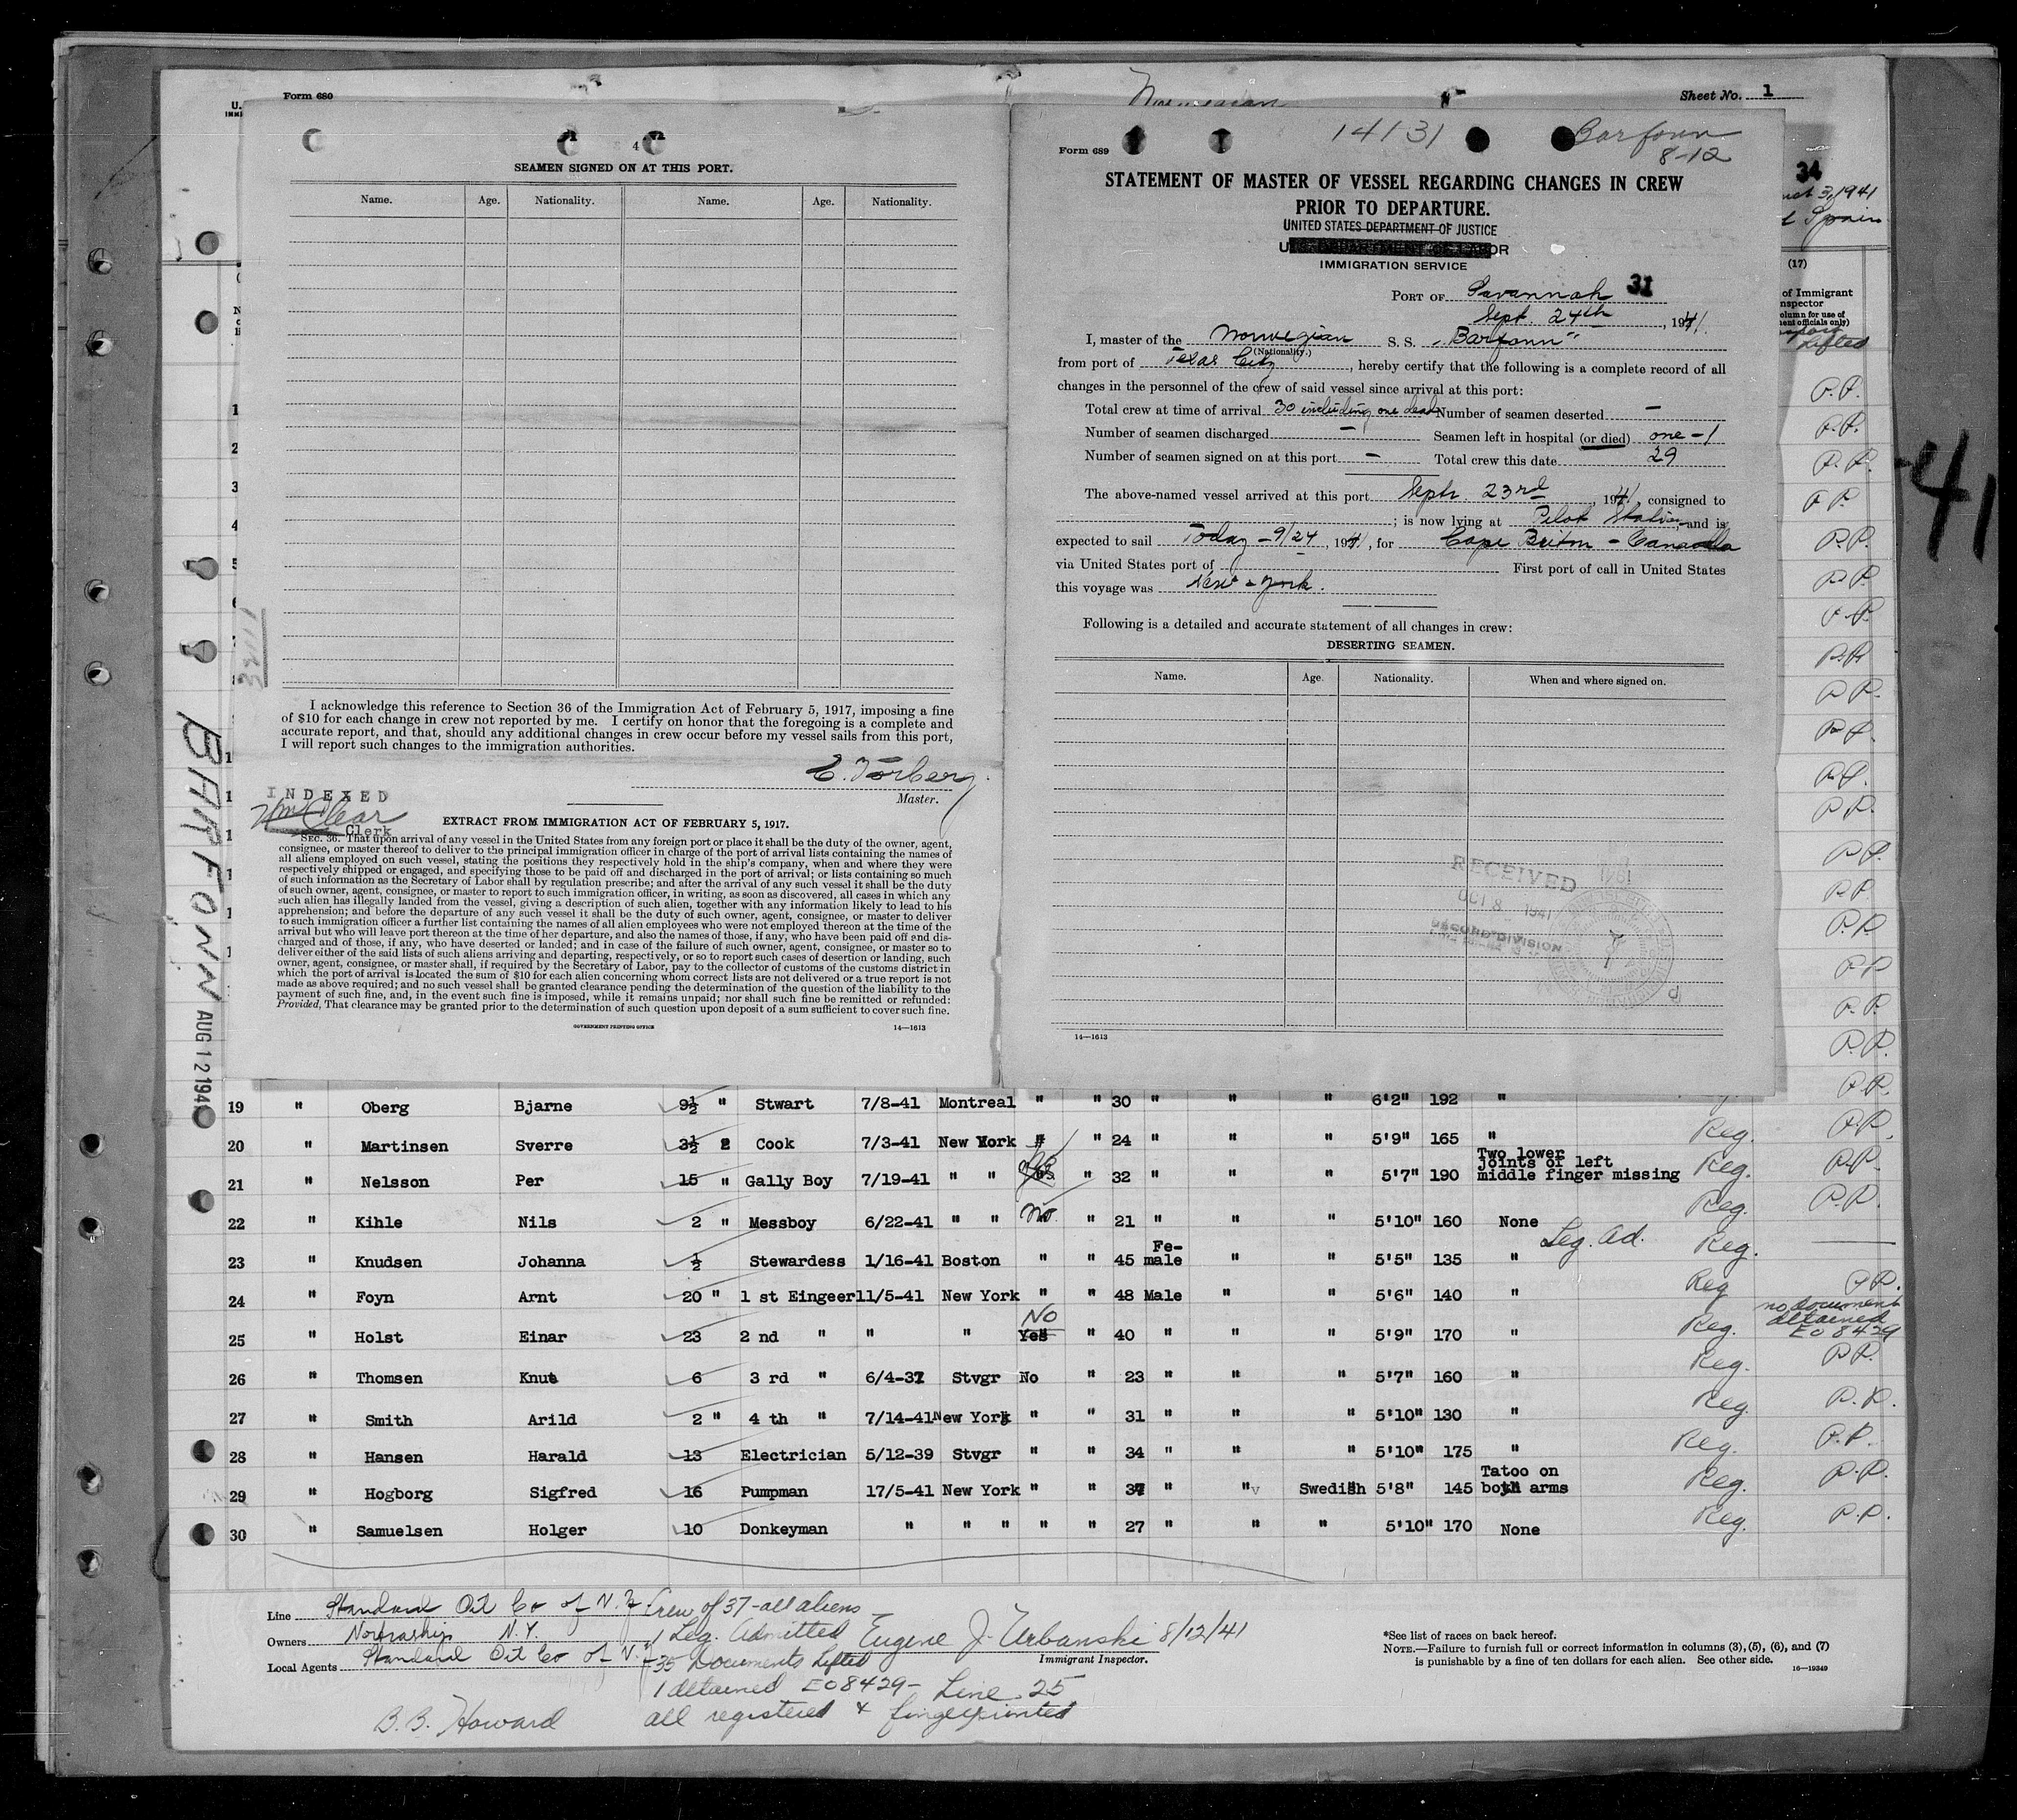 Form 680
Sheet No. 1
4
SEAMEN SIGNED ON AT THIS PORT.
Name. Age. Nationality. Name. Age. Nationality.
I acknowledge this reference to Section 36 of the Immigration Act of February 5, 1917, imposing a fine
of $10 for each change in crew not reported by me. I certify on honor that the foregoing is a complete and
accurate report, and that, should any additional changes in crew occur before my vessel sails from this port,
I will report such changes to the immigration authorities.
E. Torberg.
Master.
INDEXED
Clerk
EXTRACT FROM IMMIGRATION ACT OF FEBRUARY 5, 1917.
SEC. 36. That upon arrival of any vessel in the United States from any foreign port or place it shall be the duty of the owner, agent,
consignee, or master thereof to deliver to the principal immigration officer in charge of the port of arrival lists containing the names of
all aliens employed on such vessel, stating the positions they respectively hold in the ship's company, when and where they were
respectively shipped or engaged, and specifying those to be paid off and discharged in the port of arrival; or lists containing so much
of such information as the Secretary of Labor shall by regulation prescribe; and after the arrival of any such vessel it shall be the duty
of such owner, agent, consignee, or master to report to such immigration officer, in writing, as soon as discovered, all cases in which any
such alien has illegally landed from the vessel, giving a description of such alien, together with any information likely to lead to his
apprehension; and before the departure of any such vessel it shall be the duty of such owner, agent, consignee, or master to deliver
to such immigration officer a further list containing the names of all alien employees who were not employed thereon at the time of the
arrival but who will leave port thereon at the time of her departure, and also the names of those, if any, who have been paid off and dis-
charged and of those, if any, who have deserted or landed; and in case of the failure of such owner, agent, consignee, or master so to
deliver either of the said lists of such aliens arriving and departing, respectively, or so to report such cases of desertion or landing, such
owner, agent, consignee, or master shall, if required by the Secretary of Labor, pay to the collector of customs of the customs district in
which the port of arrival is located the sum of $10 for each alien concerning whom correct lists are not delivered or a true report is not
made as above required; and no such vessel shall be granted clearance pending the determination of the question of the liability to the
payment of such fine, and, in the event such fine is imposed, while it remains unpaid; nor shall such fine be remitted or refunded:
Provided, That clearance may be granted prior to the determination of such question upon deposit of a sum sufficient to cover such fine.
GOVERNMENT PRINTING OFFICE 14—1613
14131 Barfonn
8-12
Form 689
STATEMENT OF MASTER OF VESSEL REGARDING CHANGES IN CREW
PRIOR TO DEPARTURE.
UNITED STATES DEPARTMENT OF JUSTICE
IMMIGRATION SERVICE
PORT OF Savannah 31
Sept. 24th, 1941.
I, master of the Norwegian S. S. "Barfonn"
(Nationality.)
from port of Texas City, hereby certify that the following is a complete record of all
changes in the personnel of the crew of said vessel since arrival at this port:
Total crew at time of arrival 30 including one dead Number of seamen deserted —
Number of seamen discharged — Seamen left in hospital (or died) one - 1
Number of seamen signed on at this port — Total crew this date 29
The above-named vessel arrived at this port Septr. 23rd, 1941, consigned to
; is now lying at Pilot Station, and is
expected to sail Today - 9/24, 1941, for Cape Briton - Canada
via United States port of First port of call in United States
this voyage was New-York.
Following is a detailed and accurate statement of all changes in crew:
DESERTING SEAMEN.
Name. Age. Nationality. When and where signed on.
RECEIVED
OCT 8 1941
RECORD DIVISION
14—1613
34
3, 1941
Spain
(17)
of Immigrant
nspector
olumn for use of
ment officials only)
Lifted
41
BARFONN AUG 12 194
19 " Oberg Bjarne 9½ " Stwart 7/8-41 Montreal " " 30 " " " 6'2" 192 "
20 " Martinsen Sverre 3½ 2 Cook 7/3-41 New York " " 24 " " " 5'9" 165 " Reg. P.P.
21 " Nelsson Per 15 " Gally Boy 7/19-41 " " " 32 " " " 5'7" 190 Two lower joints of left middle finger missing Reg. P.P.
22 " Kihle Nils 2 " Messboy 6/22-41 " " No. " 21 " " " 5'10" 160 None Reg. P.P.
23 " Knudsen Johanna ½ Stewardess 1/16-41 Boston " " 45 Fe-male " " 5'5" 135 " Leg. Ad. Reg.
24 " Foyn Arnt 20 " 1 st Eingeer 11/5-41 New York " " 48 Male " " 5'6" 140 " Reg P.P.
25 " Holst Einar 23 2 nd " " " No Yes " 40 " " " 5'9" 170 " Reg. no document detained EO 8429
26 " Thomsen Knut 6 3 rd " 6/4-37 Stvgr No " 23 " " " 5'7" 160 " Reg. P.P.
27 " Smith Arild 2 " 4 th " 7/14-41 New York " " 31 " " " 5'10" 130 " Reg. P.P.
28 " Hansen Harald 13 Electrician 5/12-39 Stvgr " " 34 " " " 5'10" 175 " Reg. P.P.
29 " Hogborg Sigfred 16 Pumpman 17/5-41 New York " " 37 " " Swedish 5'8" 145 Tatoo on both arms Reg. P.P.
30 " Samuelsen Holger 10 Donkeyman " " " " " 27 " " " 5'10" 170 None Reg. P.P.
Line Standard Oil Co of N.J. Crew of 37 - all aliens
Owners Nortraship N.Y. 1 Leg. Admitted Eugene J. Urbanski 8/12/41
Local Agents Standard Oil Co of N.J. 35 Documents Lifted Immigrant Inspector.
1 detained EO8429 - Line 25
B.B. Howard all registered & fingerprinted
*See list of races on back hereof.
NOTE.—Failure to furnish full or correct information in columns (3), (5), (6), and (7)
is punishable by a fine of ten dollars for each alien. See other side.
16—19349